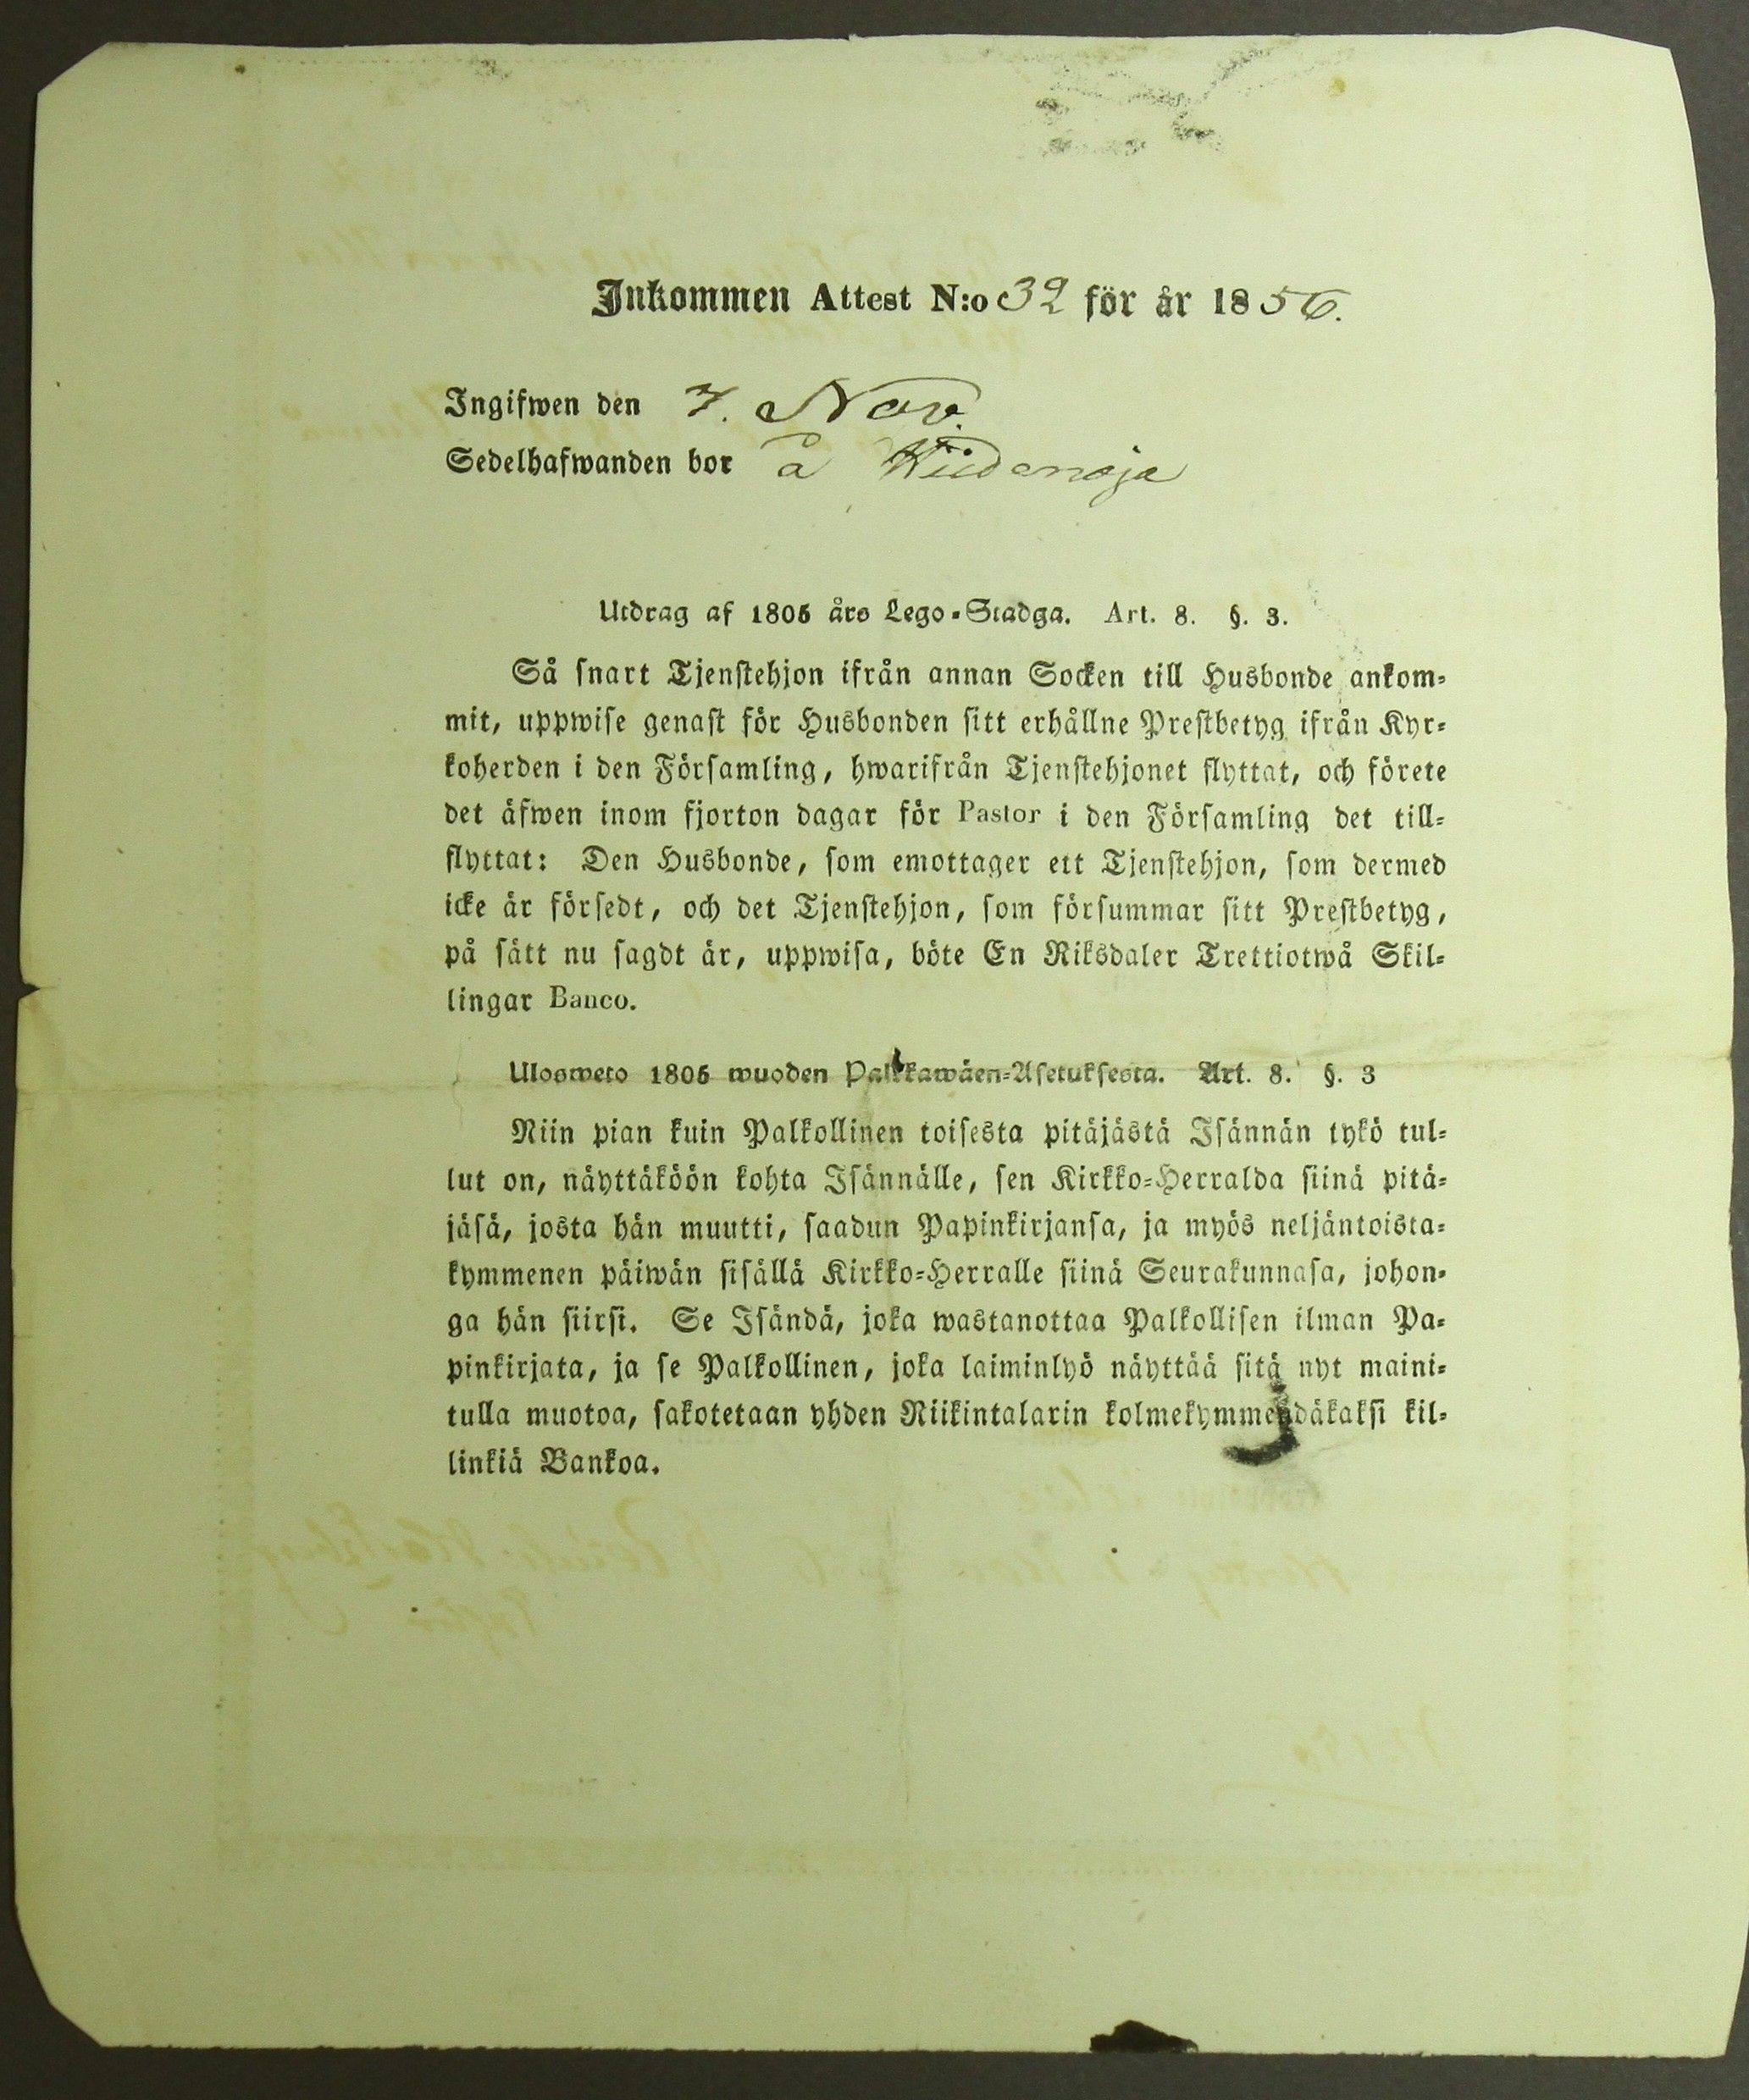 Inkommen Attest N:o 32 för år 1856.
Ingifwen den 7. Nov.
Sedelhafwanden bor å Kiidenoja
Utdrag af 1805 års Lego-Stadga. Art. 8. §. 3.
Så snart Tjenstehjon ifrån annan Socken till Husbonde ankom-
mit, uppwise genast för Husbonden sitt erhållne Prestbetyg ifrån Kyr-
koherden i den Församling, hwarifrån Tjenstehjonet flyttat, och förete
det äfwen inom fjorton dagar för Pastor i den Församling det till-
flyttat: Den Husbonde, som emottager ett Tjenstehjon, som dermed
icke är försedt, och det Tjenstehjon, som försummar sitt Prestbetyg,
på sätt nu sagdt är, uppwisa, böte En Riksdaler Trettiotwå Skil-
lingar Banco.
Ulosweto 1805 wuoden Palkkawäen-Asetuksesta. Art. 8. §. 3
Niin pian kuin Palkollinen toisesta pitäjästä Isännän tykö tul-
lut on, näyttäköön kohta Isännälle, sen Kirkko-Herralda siinä pitä-
jäsä, josta hän muutti, saadun Papinkirjansa, ja myös neljäntoista-
kymmenen päiwän sisällä Kirkko-Herralle siinä Seurakunnasa, johon-
ga hän siirsi. Se Isändä, joka wastanottaa Palkollisen ilman Pa-
pinkirjata, ja se Palkollinen, joka laiminlyö näyttää sitä nyt maini-
tulla muotoa, sakotetaan yhden Riikintalarin kolmekymmendäkaksi kil-
linkiä Bankoa.